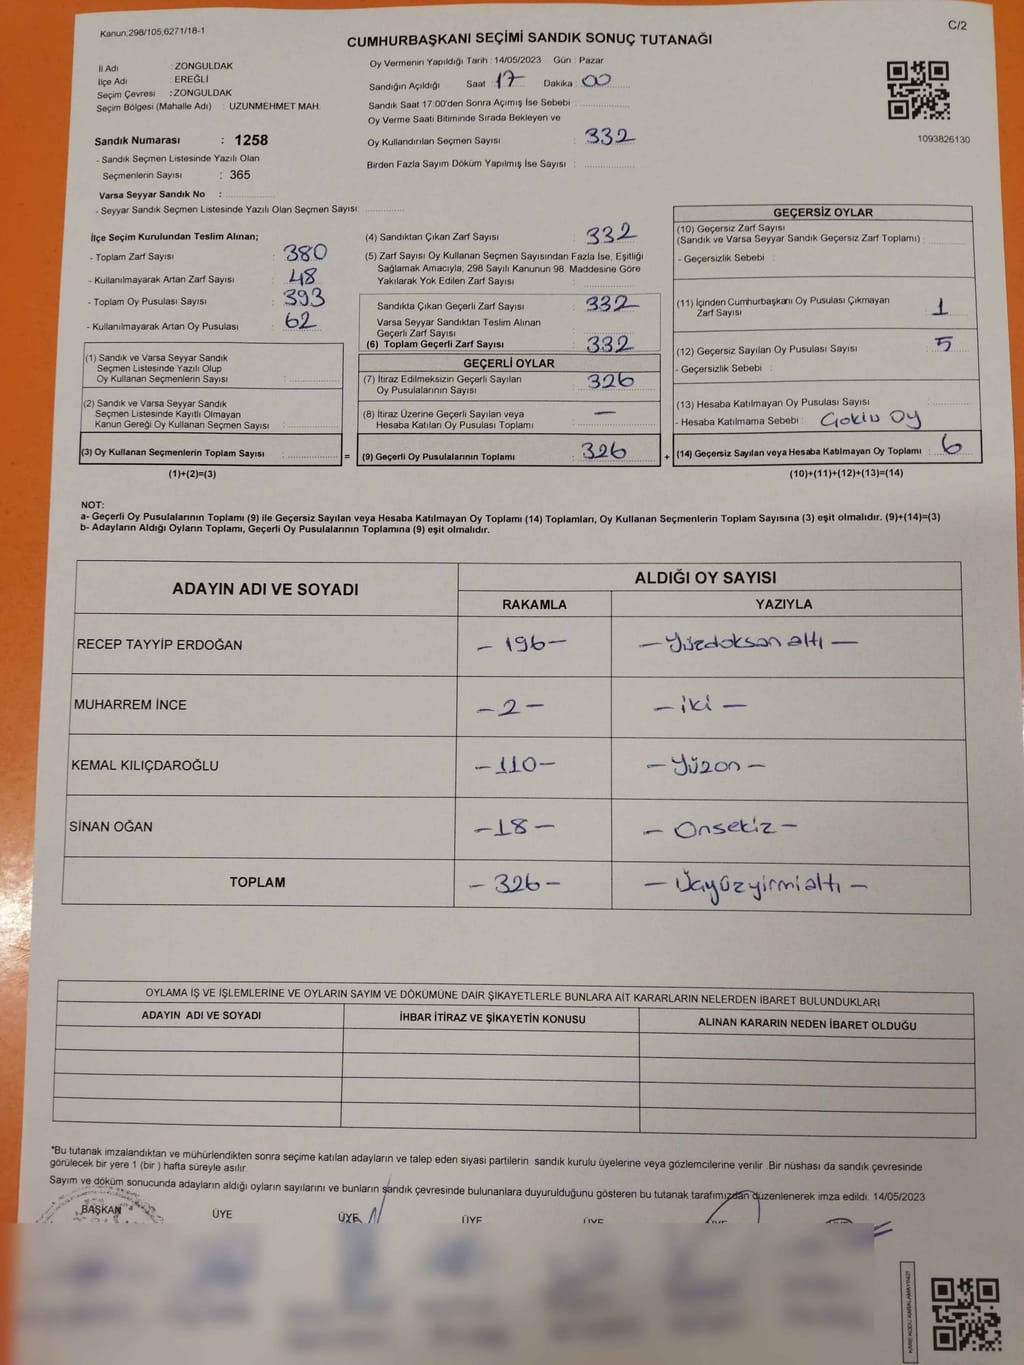 Kanun;298/105;6271/18-1
C/2
CUMHURBAŞKANI SEÇİMİ SANDIK SONUÇ TUTANAĞI
İl Adı : ZONGULDAK
İlçe Adı : EREĞLİ
Seçim Çevresi : ZONGULDAK
Seçim Bölgesi (Mahalle Adı) : UZUNMEHMET MAH.
Sandık Numarası : 1258
- Sandık Seçmen Listesinde Yazılı Olan
Seçmenlerin Sayısı : 365
Varsa Seyyar Sandık No :
- Seyyar Sandık Seçmen Listesinde Yazılı Olan Seçmen Sayısı:
Oy Vermenin Yapıldığı Tarih : 14/05/2023 Gün : Pazar
Sandığın Açıldığı Saat 17 Dakika : 00
Sandık Saat 17:00'den Sonra Açımış İse Sebebi :
Oy Verme Saati Bitiminde Sırada Bekleyen ve
Oy Kullandırılan Seçmen Sayısı : 332
Birden Fazla Sayım Döküm Yapılmış İse Sayısı :
1093826130
İlçe Seçim Kurulundan Teslim Alınan;
- Toplam Zarf Sayısı : 380
- Kullanılmayarak Artan Zarf Sayısı : 48
- Toplam Oy Pusulası Sayısı : 393
- Kullanılmayarak Artan Oy Pusulası : 62
(1) Sandık ve Varsa Seyyar Sandık
Seçmen Listesinde Yazılı Olup
Oy Kullanan Seçmenlerin Sayısı :
(2) Sandık ve Varsa Seyyar Sandık
Seçmen Listesinde Kayıtlı Olmayan
Kanun Gereği Oy Kullanan Seçmen Sayısı :
(3) Oy Kullanan Seçmenlerin Toplam Sayısı : =
(1)+(2)=(3)
(4) Sandıktan Çıkan Zarf Sayısı : 332
(5) Zarf Sayısı Oy Kullanan Seçmen Sayısından Fazla İse, Eşitliği
Sağlamak Amacıyla; 298 Sayılı Kanunun 98. Maddesine Göre
Yakılarak Yok Edilen Zarf Sayısı :
Sandıkta Çıkan Geçerli Zarf Sayısı : 332
Varsa Seyyar Sandıktan Teslim Alınan
Geçerli Zarf Sayısı :
(6) Toplam Geçerli Zarf Sayısı : 332
GEÇERLİ OYLAR
(7) İtiraz Edilmeksizin Geçerli Sayılan
Oy Pusulalarının Sayısı : 326
(8) İtiraz Üzerine Geçerli Sayılan veya
Hesaba Katılan Oy Pusulası Toplamı : —
(9) Geçerli Oy Pusulalarının Toplamı : 326 +
GEÇERSİZ OYLAR
(10) Geçersiz Zarf Sayısı
(Sandık ve Varsa Seyyar Sandık Geçersiz Zarf Toplamı) :
- Geçersizlik Sebebi :
(11) İçinden Cumhurbaşkanı Oy Pusulası Çıkmayan
Zarf Sayısı : 1
(12) Geçersiz Sayılan Oy Pusulası Sayısı : 5
- Geçersizlik Sebebi :
(13) Hesaba Katılmayan Oy Pusulası Sayısı :
- Hesaba Katılmama Sebebi : Oy
(14) Geçersiz Sayılan veya Hesaba Katılmayan Oy Toplamı : 6
(10)+(11)+(12)+(13)=(14)
NOT:
a- Geçerli Oy Pusulalarının Toplamı (9) ile Geçersiz Sayılan veya Hesaba Katılmayan Oy Toplamı (14) Toplamları, Oy Kullanan Seçmenlerin Toplam Sayısına (3) eşit olmalıdır. (9)+(14)=(3)
b- Adayların Aldığı Oyların Toplamı, Geçerli Oy Pusulalarının Toplamına (9) eşit olmalıdır.
ADAYIN ADI VE SOYADI
ALDIĞI OY SAYISI
RAKAMLA YAZIYLA
RECEP TAYYİP ERDOĞAN – 196 – – Yüzdoksan altı –
MUHARREM İNCE – 2 – – iki –
KEMAL KILIÇDAROĞLU – 110 – – Yüzon –
SİNAN OĞAN – 18 – – Onsekiz –
TOPLAM – 326 – – Üçyüzyirmialtı –
OYLAMA İŞ VE İŞLEMLERİNE VE OYLARIN SAYIM VE DÖKÜMÜNE DAİR ŞİKAYETLERLE BUNLARA AİT KARARLARIN NELERDEN İBARET BULUNDUKLARI
ADAYIN ADI VE SOYADI İHBAR İTİRAZ VE ŞİKAYETİN KONUSU ALINAN KARARIN NEDEN İBARET OLDUĞU
*Bu tutanak imzalandıktan ve mühürlendikten sonra seçime katılan adayların ve talep eden siyasi partilerin sandık kurulu üyelerine veya gözlemcilerine verilir .Bir nüshası da sandık çevresinde
görülecek bir yere 1 (bir ) hafta süreyle asılır.
Sayım ve döküm sonucunda adayların aldığı oyların sayılarını ve bunların sandık çevresinde bulunanlara duyurulduğunu gösteren bu tutanak tarafımızdan düzenlenerek imza edildi. 14/05/2023
BAŞKAN ÜYE ÜYE ÜYE ÜYE